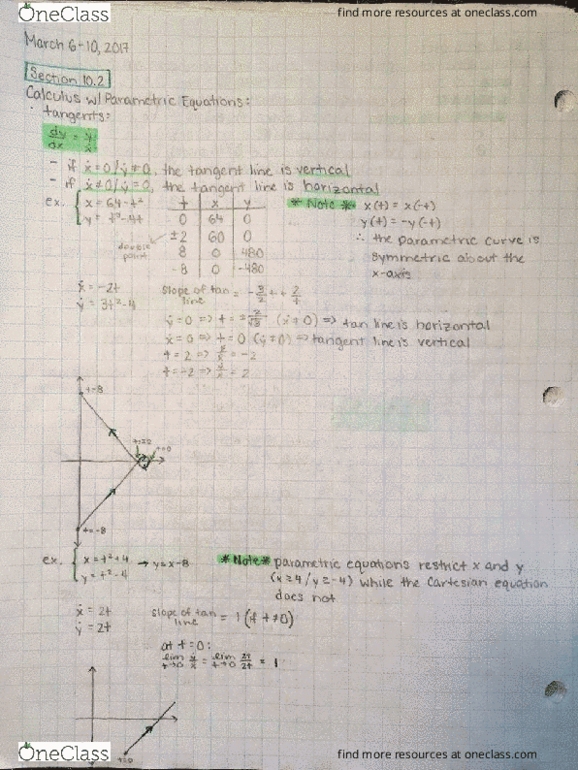 OneClass
find more resources at oneclass.com
March 6-10, 2017
Section 10.2
Calculus w/ Parametric Equations:
· tangents:
dy/dx = ẏ/ẋ
- if ẋ=0/ẏ≠0, the tangent line is vertical
- if ẋ≠0/ẏ=0, the tangent line is horizontal
ex. { x = 64-t²
y = t³-4t
t x y
0 64 0
±2 60 0
8 0 480
-8 0 -480
double point
*Note* x(t) = x(-t)
y(t) = -y(-t)
∴ the parametric curve is
symmetric about the
x-axis
ẋ = -2t
ẏ = 3t²-4
slope of tan line = -3/2 t + 2/t
ẏ=0 => t = ±2/√3 (ẋ≠0) => tan line is horizontal
ẋ=0 => t=0 (ẏ≠0) => tangent line is vertical
t=2 => ẏ/ẋ = -2
t=-2 => ẏ/ẋ = 2
t=8
t=±2
t=0
t=-8
ex. { x = t²+4 → y=x-8
y = t²-4
*Note* parametric equations restrict x and y
(x≥4/y≥-4) while the Cartesian equation
does not
ẋ = 2t
ẏ = 2t
slope of tan line = 1 (if t≠0)
at t=0:
lim t→0 ẏ/ẋ = lim t→0 2t/2t = 1
t=0
OneClass
find more resources at oneclass.com